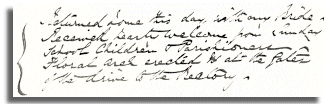 Returned home this day, with my Bride.
Received hearty welcome from Sunday
School Children & Parishioners
Floral arch erected at the gates
of the drive to the Rectory.